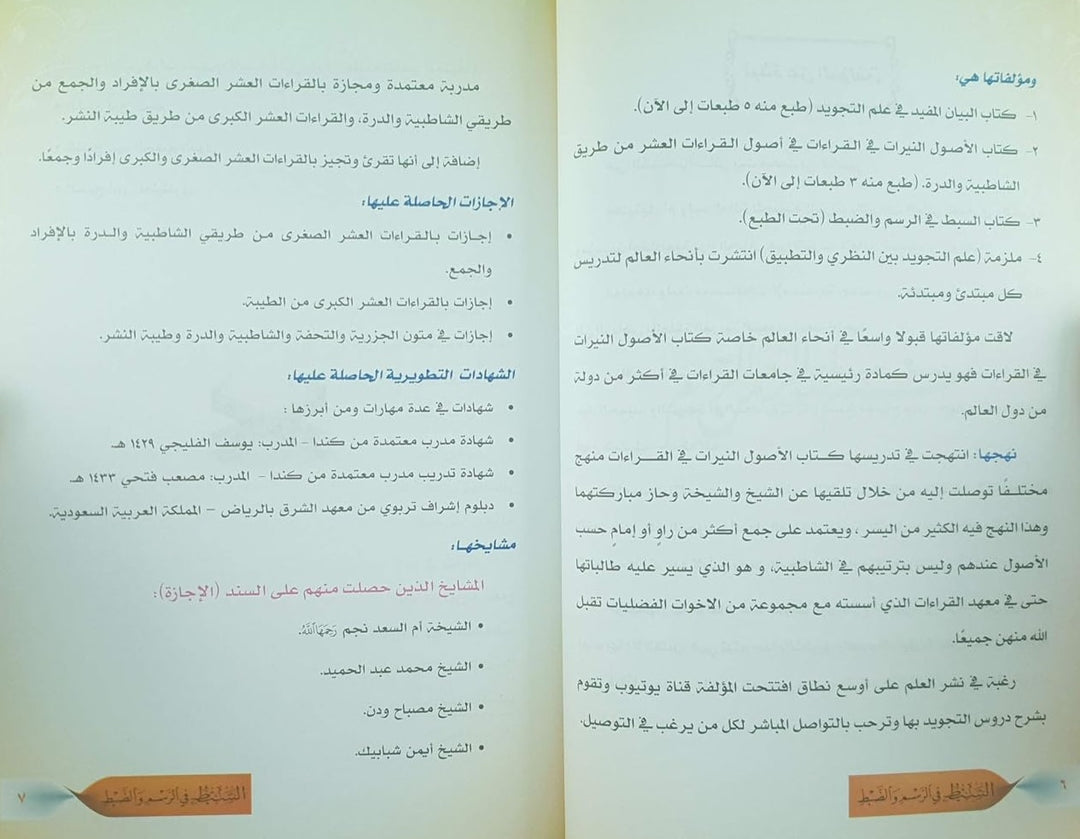 ومؤلفاتها هي:
١- كتاب البيان المفيد في علم التجويد (طبع منه ٥ طبعات إلى الآن).
٢- كتاب الأصول النيرات في القراءات في أصول القراءات العشر من طريق
الشاطبية والدرة. (طبع منه ٣ طبعات إلى الآن).
٣- كتاب السبط في الرسم والضبط (تحت الطبع).
٤- ملزمة (علم التجويد بين النظري والتطبيق) انتشرت بأنحاء العالم لتدريس
كل مبتدئ ومبتدئة.
لاقت مؤلفاتها قبولا واسعًا في أنحاء العالم خاصة كتاب الأصول النيرات
في القراءات فهو يدرس كمادة رئيسية في جامعات القراءات في أكثر من دولة
من دول العالم.
نهجها: انتهجت في تدريسها كتاب الأصول النيرات في القراءات منهج
مختلفًا توصلت إليه من خلال تلقيها عن الشيخ والشيخة وحاز مباركتهما
وهذا النهج فيه الكثير من اليسر ، ويعتمد على جمع أكثر من راوٍ أو إمامٍ حسب
الأصول عندهم وليس بترتيبهم في الشاطبية، و هو الذي يسير عليه طالباتها
حتى في معهد القراءات الذي أسسته مع مجموعة من الاخوات الفضليات تقبل
الله منهن جميعًا.
رغبة في نشر العلم على أوسع نطاق افتتحت المؤلفة قناة يوتيوب وتقوم
بشرح دروس التجويد بها وترحب بالتواصل المباشر لكل من يرغب في التوصيل.
السبط في الرسم والضبط
٦
مدربة معتمدة ومجازة بالقراءات العشر الصغرى بالإفراد والجمع من
طريقي الشاطبية والدرة، والقراءات العشر الكبرى من طريق طيبة النشر.
إضافة إلى أنها تقرئ وتجيز بالقراءات العشر الصغرى والكبرى إفرادًا وجمعًا.
الإجازات الحاصلة عليها:
• إجازات بالقراءات العشر الصغرى من طريقي الشاطبية والدرة بالإفراد
والجمع.
• إجازات بالقراءات العشر الكبرى من الطيبة.
• إجازات في متون الجزرية والتحفة والشاطبية والدرة وطيبة النشر.
الشهادات التطويرية الحاصلة عليها:
• شهادات في عدة مهارات ومن أبرزها :
• شهادة مدرب معتمدة من كندا – المدرب: يوسف الفليجي ١٤٢٩ هـ
• شهادة تدريب مدرب معتمدة من كندا – المدرب: مصعب فتحي ١٤٣٣ هـ
• دبلوم إشراف تربوي من معهد الشرق بالرياض – المملكة العربية السعودية.
مشايخها:
المشايخ الذين حصلت منهم على السند (الإجازة):
• الشيخة أم السعد نجم رَحِمَهَا اللَّهُ.
• الشيخ محمد عبد الحميد.
• الشيخ مصباح ودن.
• الشيخ أيمن شبابيك.
السبط في الرسم والضبط
٧